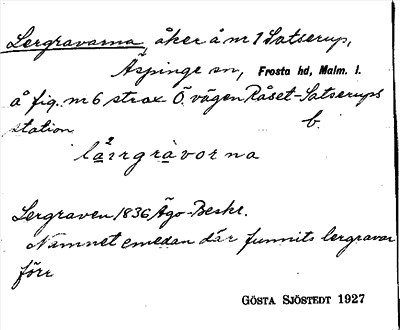 Lergravarna, åker å nr 1 Satserup,
Äspinge sn, Frosta hd, Malm. l.
å fig. nr 6 strax Ö. vägen Råset-Satserups
station b.
lärgràvorna
Lergraven 1836 Ägo-Beskr.
Namnet emedan där funnits lergravar
förr
GÖSTA SJÖSTEDT 1927